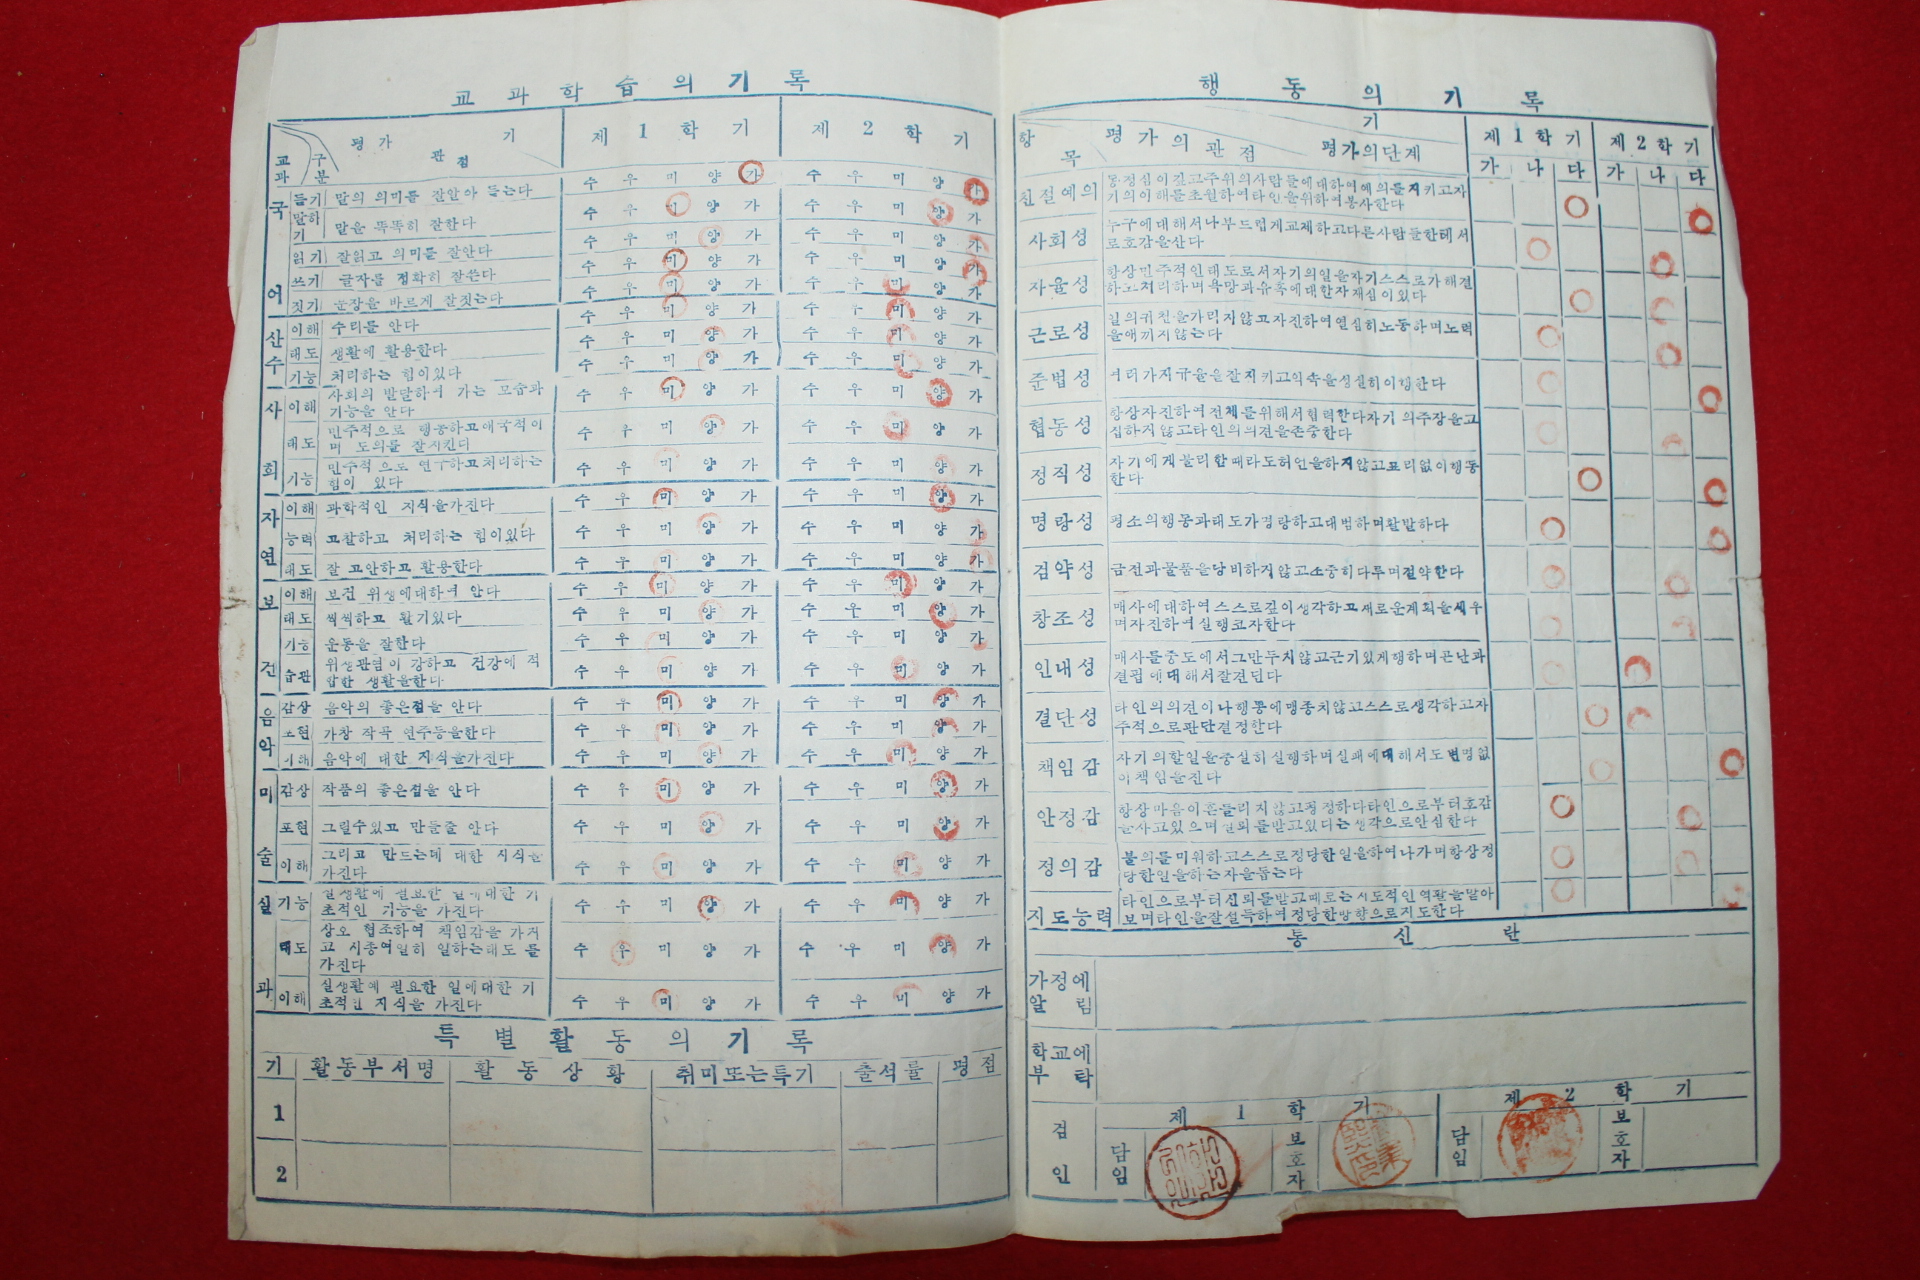 교과학습의기록
평가 기
관점
교과 구분
제 1 학 기
제 2 학 기
수 우 미 양 가 수 우 미 양 가
국어
듣기 말의 의미를 잘안아 듣는다
수 우 미 양 가 수 우 미 양 가
말하기 말을 똑똑히 잘한다
수 우 미 양 가 수 우 미 양 가
읽기 잘읽고 의미를 잘안다
수 우 미 양 가 수 우 미 양 가
쓰기 글자를 정확히 잘쓴다
수 우 미 양 가 수 우 미 양 가
짓기 문장을 바르게 잘짓는다
수 우 미 양 가 수 우 미 양 가
산수
이해 수리를 안다
수 우 미 양 가 수 우 미 양 가
태도 생활에 활용한다
수 우 미 양 가 수 우 미 양 가
기능 처리하는 힘이있다
사회
이해 사회의 발달하여 가는 모습과
기능을 안다
수 우 미 양 가 수 우 미 양 가
태도 민주적으로 행동하고애국적이
며 도의를 잘지킨다
수 우 미 양 가 수 우 미 양 가
기능 민주적 으로 연구하고처리하는
힘이 있다
수 우 미 양 가 수 우 미 양 가
자연
이해 과학적인 지식을가진다
수 우 미 양 가 수 우 미 양 가
능력 고찰하고 처리하는 힘이있다
수 우 미 양 가 수 우 미 양 가
태도 잘 고안하고 활용한다
수 우 미 양 가 수 우 미 양 가
보건
이해 보건 위생에대하여 안다
수 우 미 양 가 수 우 미 양 가
태도 씩씩하고 활기있다
수 우 미 양 가 수 우 미 양 가
기능 운동을 잘한다
수 우 미 양 가 수 우 미 양 가
습관 위생관념이 강하고 건강에 적
합한 생활을한다
수 우 미 양 가 수 우 미 양 가
음악
감상 음악의 좋은점을 안다
수 우 미 양 가 수 우 미 양 가
표현 가창 작곡 연주등을한다
수 우 미 양 가 수 우 미 양 가
이해 음악에 대한 지식을가진다
수 우 미 양 가 수 우 미 양 가
미술
감상 작품의 좋은점을 안다
수 우 미 양 가 수 우 미 양 가
표현 그릴수있고 만들줄 안다
수 우 미 양 가 수 우 미 양 가
이해 그리고 만드는데 대한 지식을
가진다
수 우 미 양 가 수 우 미 양 가
실과
기능 실생활에 필요한 일에대한 기
초적인 기능을 가진다
수 우 미 양 가 수 우 미 양 가
태도 상오 협조하여 책임감을 가지
고 시종여일히 일하는태도 를
가진다
수 우 미 양 가 수 우 미 양 가
이해 실생활에 필요한 일에대한 기
초적인 지식을 가진다
수 우 미 양 가 수 우 미 양 가
특별활동의기록
기 활동부서명 활동상황 취미또는특기 출석률 평점
1
2
행동의기록
항목 평가의관점 기 평가의단계
제1학기 제2학기
가 나 다 가 나 다
친절예의 동정심이깊고주위의사람들에대하여예의를지키고자
기의이해를초월하여타인을위하여봉사한다
사회성 누구에대해서나부드럽게교제하고다른사람들한테서
로호감을산다
자율성 항상민주적인태도로서자기의일을자기스스로가해결
하고처리하며욕망과유혹에대한자제심이있다
근로성 일의귀천을가리지않고자진하여열심히노동하며노력
을애끼지않는다
준법성 여러가지규율을잘지키고약속을성실히이행한다
협동성 항상자진하여전체를위해서협력한다자기의주장을고
십하지않고타인의의견을존중한다
정직성 자기에게불리할때라도허언을하지않고표리없이행동
한다
명랑성 평소의행동과태도가명랑하고대범하며활발하다
검약성 금전과물품을낭비하지않고소중히다루며절약한다
창조성 매사에대하여스스로깊이생각하고새로운계획을세우
며자진하여실행코자한다
인내성 매사를중도에서그만두지않고근기있게행하며곤난과
결핍에대해서잘견딘다
결단성 타인의의견이나행동에맹종치않고스스로생각하고자
주적으로판단결정한다
책임감 자기의할일을충실히실행하며실패에대해서도변명없
이책임을진다
안정감 항상마음이흔들리지않고평정하다타인으로부터호감
을사고있으며신뢰를받고있다는생각으로안심한다
정의감 불의를미워하고스스로정당한일을하여나가며항상정
당한일을하는자을돕는다
지도능력 타인으로부터신뢰를받고때로는지도적인역할을맡아
보며타인을잘설득하여정당한방향으로지도한다
통신란
가정에
알림
학교에
부탁
검인
제 1 학 기 제 2 학 기
담임 보호자 담임 보호자